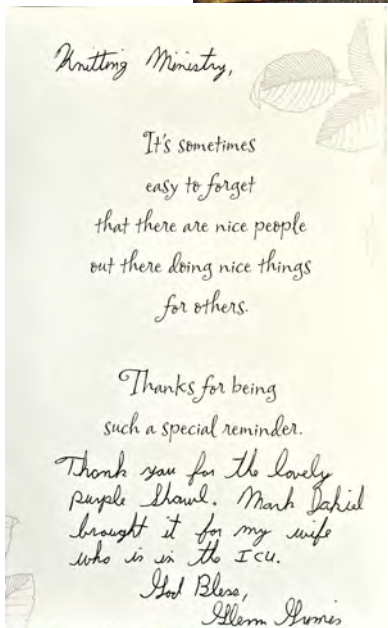 Knitting Ministry,
It's sometimes
easy to forget
that there are nice people
out there doing nice things
for others.
Thanks for being
such a special reminder.
Thank you for the lovely
purple Shawl. Mark
brought it for my wife
who is in the ICU.
God Bless,
Glenn